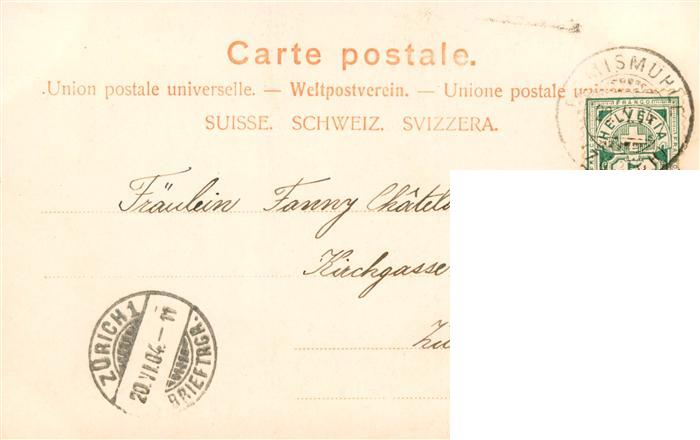 Carte postale.
Union postale universelle. — Weltpostverein. — Unione postale
SUISSE. SCHWEIZ. SVIZZERA.
FRANCO
HELVETIA
Fräulein Fanny Châtel
Kirchgasse
Zü
ZÜRICH 1
20.VI.04.-11
BRIEFTRGR.